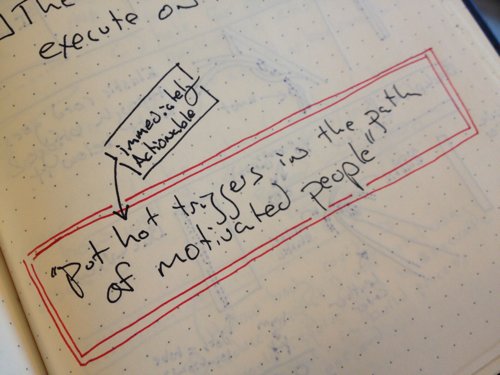 The
execute on
immediately
Actionable
"put hot triggers in the path
of motivated people"